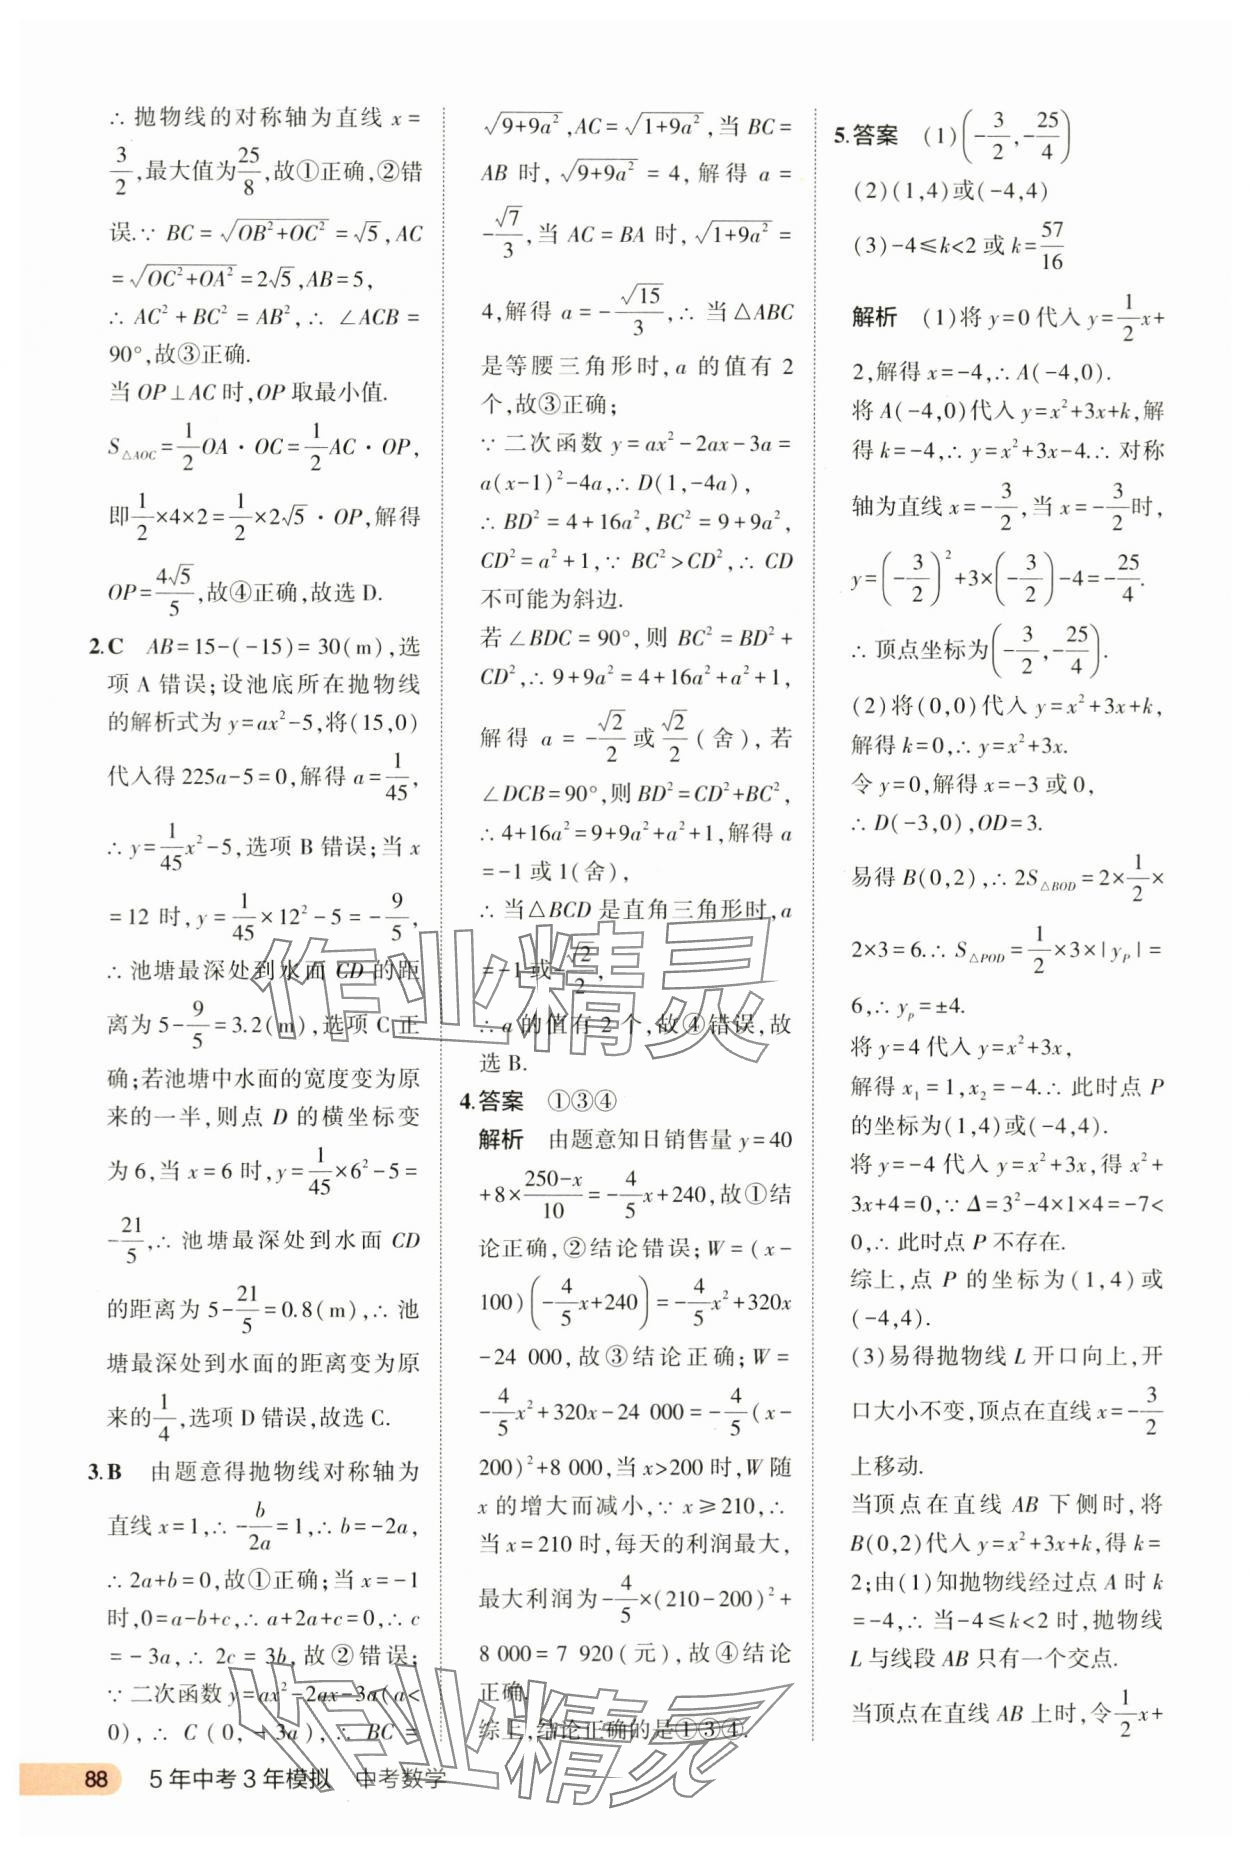 ∴ 抛物线的对称轴为直线 x =
3/2,最大值为25/8,故①正确,②错
误.∵ BC = √(OB²+OC²) = √5,AC
= √(OC²+OA²) = 2√5,AB = 5,
∴ AC²+BC² = AB²,∴ ∠ACB =
90°,故③正确.
当 OP⊥AC 时,OP 取最小值.
S△AOC = 1/2 OA · OC = 1/2 AC · OP,
即 1/2 ×4×2 = 1/2 ×2√5 · OP,解得
OP = 4√5/5,故④正确,故选 D.
2.C AB = 15-(-15) = 30(m),选
项 A 错误;设池底所在抛物线
的解析式为 y = ax²-5,将(15,0)
代入得 225a-5 = 0,解得 a = 1/45,
∴ y = 1/45 x²-5,选项 B 错误;当 x
= 12 时,y = 1/45 ×12²-5 = -9/5,
∴ 池塘最深处到水面 CD 的距
离为 5-9/5 = 3.2(m),选项 C 正
确;若池塘中水面的宽度变为原
来的一半,则点 D 的横坐标变
为 6,当 x = 6 时,y = 1/45 ×6²-5 =
-21/5,∴ 池塘最深处到水面 CD
的距离为 5-21/5 = 0.8(m),∴ 池
塘最深处到水面的距离变为原
来的1/4,选项 D 错误,故选 C.
3.B 由题意得抛物线对称轴为
直线 x = 1,∴ -b/2a = 1,∴ b = -2a,
∴ 2a+b = 0,故①正确;当 x = -1
时,0 = a-b+c,∴ a+2a+c = 0,∴ c
= -3a,∴ 2c = 3b,故②错误;
∵ 二次函数 y = ax²-2ax-3a(a<
0),∴ C(0,-3a),∴ BC =
√(9+9a²),AC = √(1+9a²),当 BC =
AB 时,√(9+9a²) = 4,解得 a =
-√7/3,当 AC = BA 时,√(1+9a²) =
4,解得 a = -√15/3,∴ 当△ABC
是等腰三角形时,a 的值有 2
个,故③正确;
∵ 二次函数 y = ax²-2ax-3a =
a(x-1)²-4a,∴ D(1,-4a),
∴ BD² = 4+16a²,BC² = 9+9a²,
CD² = a²+1,∵ BC²>CD²,∴ CD
不可能为斜边.
若∠BDC = 90°,则 BC² = BD²+
CD²,∴ 9+9a² = 4+16a²+a²+1,
解得 a = -√2/2 或 √2/2 (舍),若
∠DCB = 90°,则 BD² = CD²+BC²,
∴ 4+16a² = 9+9a²+a²+1,解得 a
= -1 或 1(舍),
∴ 当△BCD 是直角三角形时,a
= -1 或 -√2/2,
∴ a 的值有 2 个,故④错误,故
选 B.
4.答案 ①③④
解析 由题意知日销售量 y = 40
+8×(250-x)/10 = -4/5 x+240,故①结
论正确,②结论错误;W = (x-
100)(-4/5 x+240) = -4/5 x²+320x
-24 000,故③结论正确;W =
-4/5 x²+320x-24 000 = -4/5 (x-
200)²+8 000,当 x>200 时,W 随
x 的增大而减小,∵ x≥210,∴
当 x = 210 时,每天的利润最大,
最大利润为-4/5 ×(210-200)²+
8 000 = 7 920(元),故④结论
正确.
综上,结论正确的是①③④.
5.答案 (1)(-3/2,-25/4)
(2)(1,4)或(-4,4)
(3)-4≤k<2 或 k = 57/16
解析 (1)将 y = 0 代入 y = 1/2 x+
2,解得 x = -4,∴ A(-4,0).
将 A(-4,0)代入 y = x²+3x+k,解
得 k = -4,∴ y = x²+3x-4.∴ 对称
轴为直线 x = -3/2,当 x = -3/2时,
y = (-3/2)²+3×(-3/2)-4 = -25/4.
∴ 顶点坐标为(-3/2,-25/4).
(2)将(0,0)代入 y = x²+3x+k,
解得 k = 0,∴ y = x²+3x.
令 y = 0,解得 x = -3 或 0,
∴ D(-3,0),OD = 3.
易得 B(0,2),∴ 2S△BOD = 2×1/2×
2×3 = 6.∴ S△POD = 1/2 ×3×|yP| =
6,∴ yp = ±4.
将 y = 4 代入 y = x²+3x,
解得 x₁ = 1,x₂ = -4.∴ 此时点 P
的坐标为(1,4)或(-4,4).
将 y = -4 代入 y = x²+3x,得 x²+
3x+4 = 0,∵ Δ = 3²-4×1×4 = -7<
0,∴ 此时点 P 不存在.
综上,点 P 的坐标为(1,4)或
(-4,4).
(3)易得抛物线 L 开口向上,开
口大小不变,顶点在直线 x = -3/2
上移动.
当顶点在直线 AB 下侧时,将
B(0,2)代入 y = x²+3x+k,得 k =
2;由(1)知抛物线经过点 A 时 k
= -4,∴ 当-4≤k<2 时,抛物线
L 与线段 AB 只有一个交点.
当顶点在直线 AB 上时,令1/2 x+
作业精灵
作业精灵
88 5 年中考 3 年模拟 中考数学